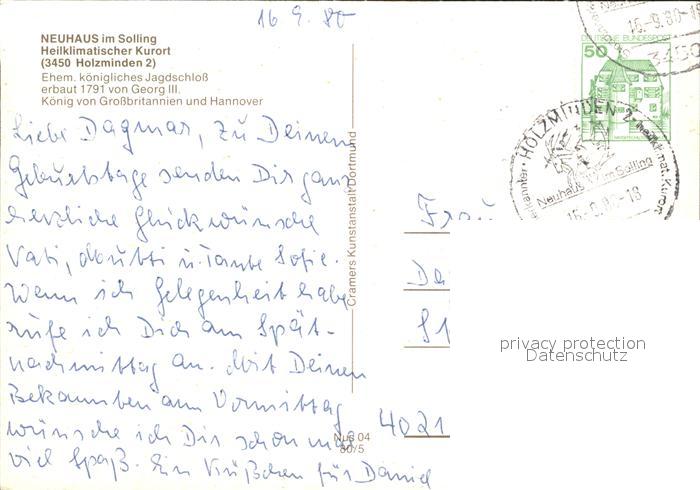 16.9.80
NEUHAUS im Solling
Heilklimatischer Kurort
(3450 Holzminden 2)
Ehem. königliches Jagdschloß
erbaut 1791 von Georg III.
König von Großbritannien und Hannover
Liebe Dagmar, zu Deinem
Geburtstage senden Dir ganz
herzliche Glückwünsche
Vati, Mutti u. Tante Sofie.
Wenn ich Gelegenheit habe
rufe ich Dich am Spät-
nachmittag an. Mit Deinen
Bekannten am Vormittag
wünsche ich Dir schon mal
viel Spaß. Ein Küßchen für Daniel
Cramers Kunstanstalt Dortmund
Nus 04
80/5
DEUTSCHE BUNDESPOST
50
16.-9.80-18
3450
HOLZMINDEN 2
heilklimat. Kurort
Neuhaus im Solling
16.-9.80-18
Frau
Da
St
4021
privacy protection
Datenschutz